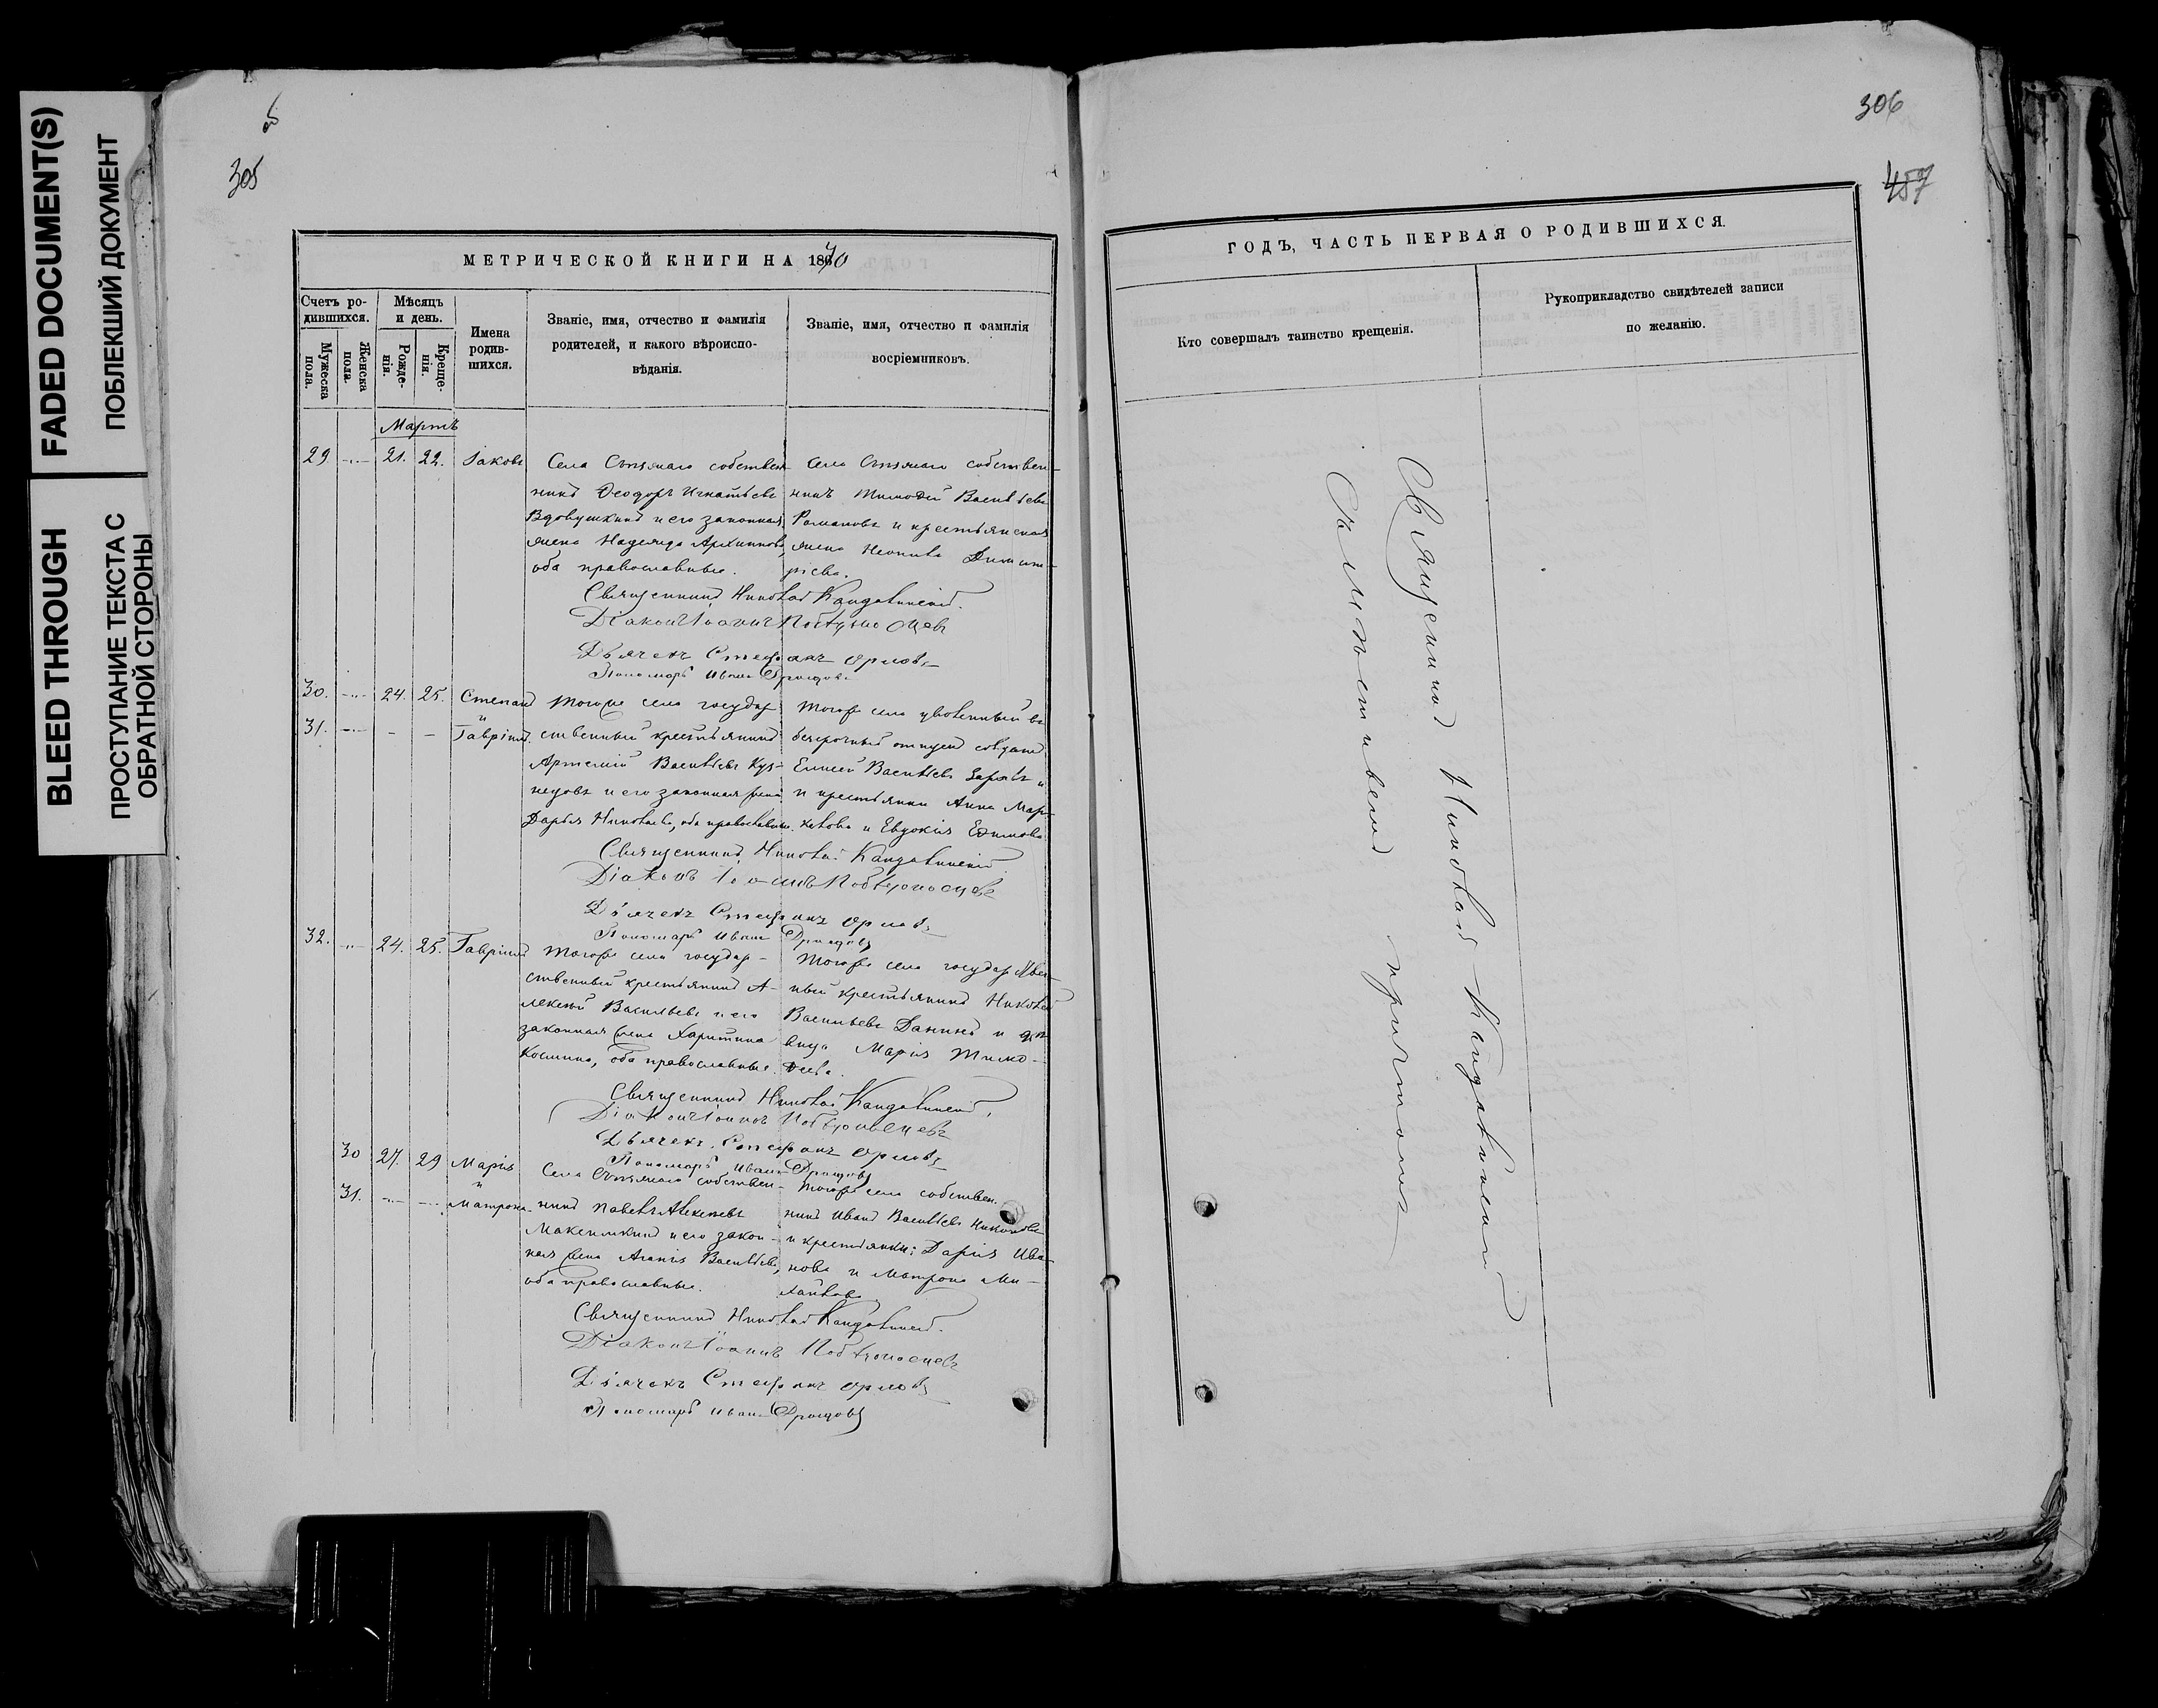 FADED DOCUMENT(S)
ПОБЛЕКШИЙ ДОКУМЕНТ
BLEED THROUGH
ПРОСТУПАНИЕ ТЕКСТА С
ОБРАТНОЙ СТОРОНЫ
305
МЕТРИЧЕСКОЙ КНИГИ НА 1870
Счетъ ро-
дившихся.
Мужеска
пола.
Женска
пола.
Мѣсяцъ
и день.
Рожде-
нія.
Креще-
нія.
Имена
родив-
шихся.
Званіе, имя, отчество и фамилія
родителей, и какого вѣроиспо-
вѣданія.
Званіе, имя, отчество и фамилія
воспріемниковъ.
Мартъ
29 21. 22. Іаковъ
Села собствен-
никъ Ѳеодоръ Игнатьевъ
Вдовушкинъ и его законная
жена Надежда Архипова,
оба православные.
Село собствен-
никъ Тимоѳей Васильевъ
Романовъ и крестьянская
жена Неонила Димит-
ріева.
Священникъ Николай
Діаконъ Іоаннъ Побѣдоносцевъ
Дьячекъ Стефанъ Орловъ
Пономарь Иванъ Дроздовъ
30. 24. 25. Степанъ
и
31. Гавріилъ.
Тогоже села государ-
ственный крестьянинъ
Артемій Васильевъ Куз-
нецовъ и его законная жена
Дарья Николаева, оба православные.
Тогоже села уволенный въ
безсрочный отпускъ солдатъ
Елисей Васильевъ и
и крестьянки Анна Мар-
кова и Евдокія Ефимова
Священникъ Николай
Діаконъ Іоаннъ Побѣдоносцевъ
Дьячекъ Стефанъ Орловъ
Пономарь Иванъ Дроздовъ
32. 24. 25. Гавріилъ
Тогоже села государ-
ственный крестьянинъ А-
лексѣй Васильевъ и его
законная жена Харитина
Космина, оба православные.
Тогоже села государствен-
ный крестьянинъ Николай
Васильевъ Данинъ и дѣ-
вица Марія Тимо-
ѳеева.
Священникъ Николай
Діаконъ Іоаннъ Побѣдоносцевъ
Дьячекъ Стефанъ Орловъ
Пономарь Иванъ Дроздовъ
30 27. 29 Марія
и
31. Матрона
Села собствен-
никъ Павелъ Алексѣевъ
Максимкинъ и его закон-
ная жена Агапія Васильева,
оба православные.
Тогоже села собствен-
никъ Иванъ Васильевъ
и крестьянки: Дарія Ива-
нова и Матрона Ми-
хайлова
Священникъ Николай
Діаконъ Іоаннъ Побѣдоносцевъ
Дьячекъ Стефанъ Орловъ
Пономарь Иванъ Дроздовъ
306
457
ГОДЪ, ЧАСТЬ ПЕРВАЯ О РОДИВШИХСЯ.
Кто совершалъ таинство крещенія.
Рукоприкладство свидѣтелей записи
по желанію.
Священникъ Николай
причтомъ